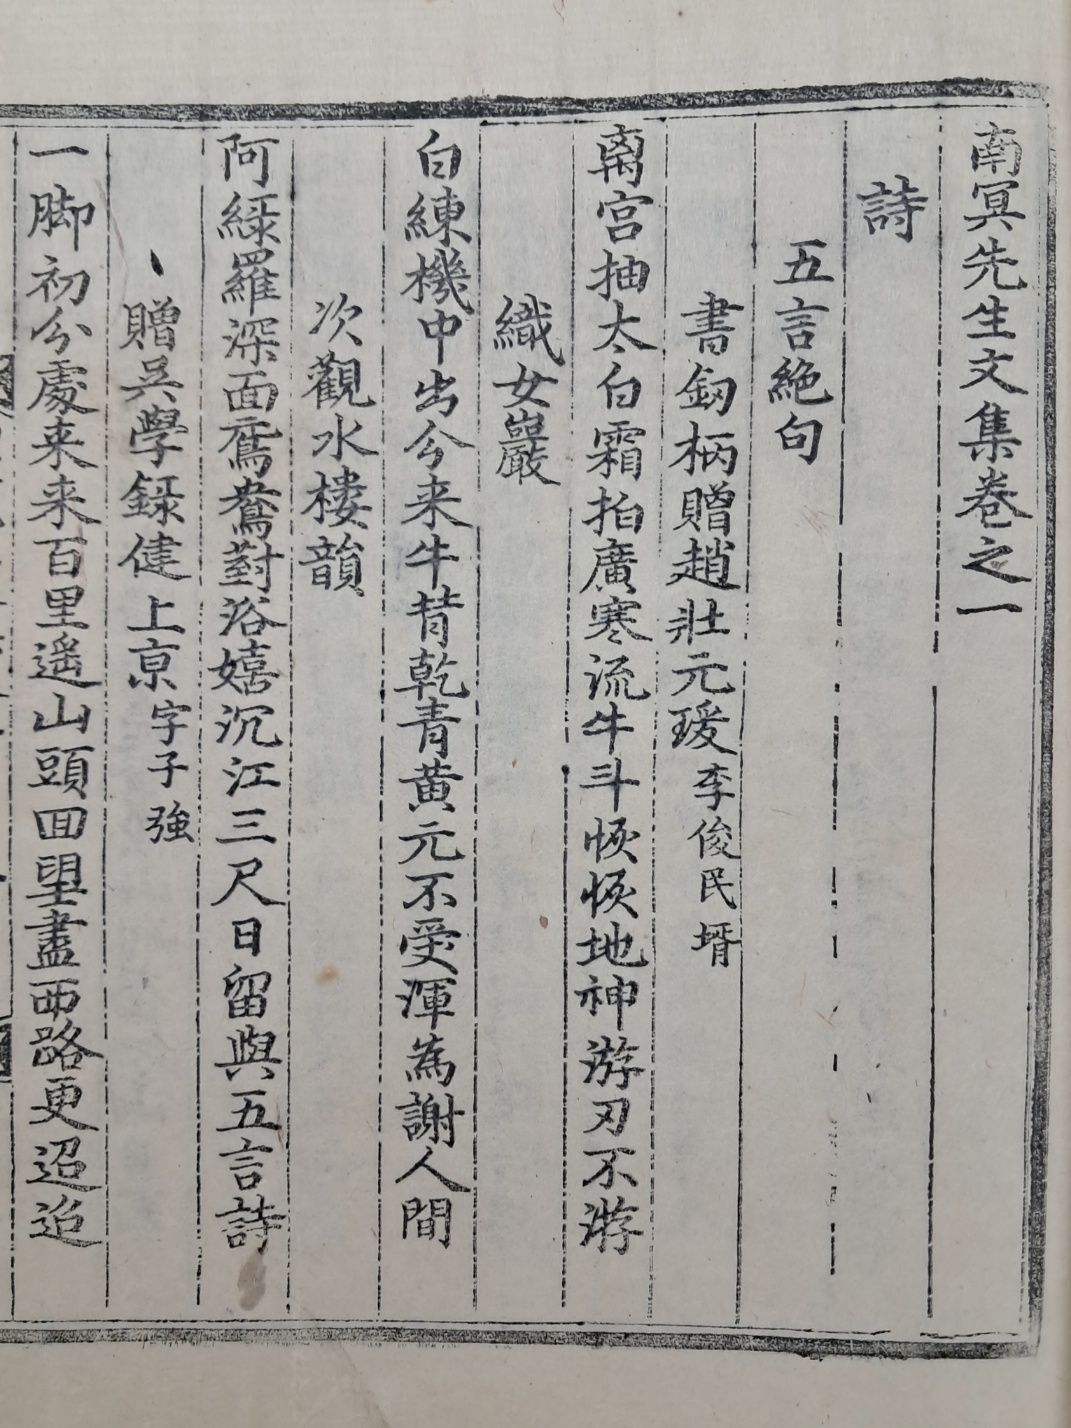 南冥先生文集卷之一
詩
五言絶句
書釰柄贈趙壯元瑗李俊民壻
离宫抽太白霜拍廣寒流牛斗恢恢地神游刃不游
織女巖
白練機中出分来牛昔乾青黄元不受渾爲謝人間
次觀水樓韻
阿綠羅深面鴛鴦對浴嬉沉江三尺日留與五言詩
贈吴學録健上京字子強
一脚初分處来来百里遥山頭囬望盡西路更迢迢